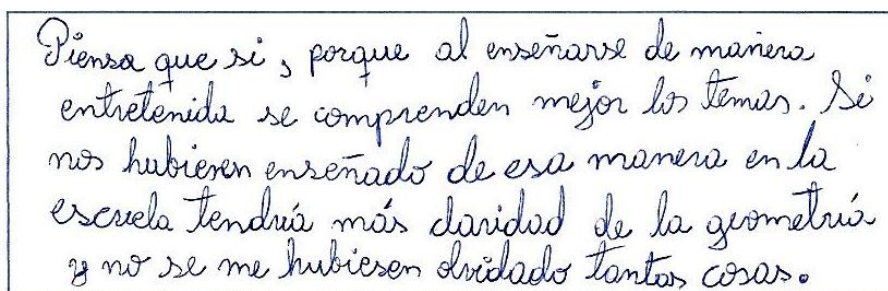 Piensa que si, porque al enseñarse de manera
entretenida se comprenden mejor los temas. Si
nos hubiesen enseñado de esa manera en la
escuela tendría más claridad de la geometría
y no se me hubiesen olvidado tantas cosas.